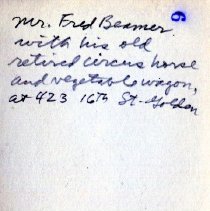 9
Mr. Fred Beamer
with his old
retired circus horse
and vegetable wagon,
at 923 16th St. Golden